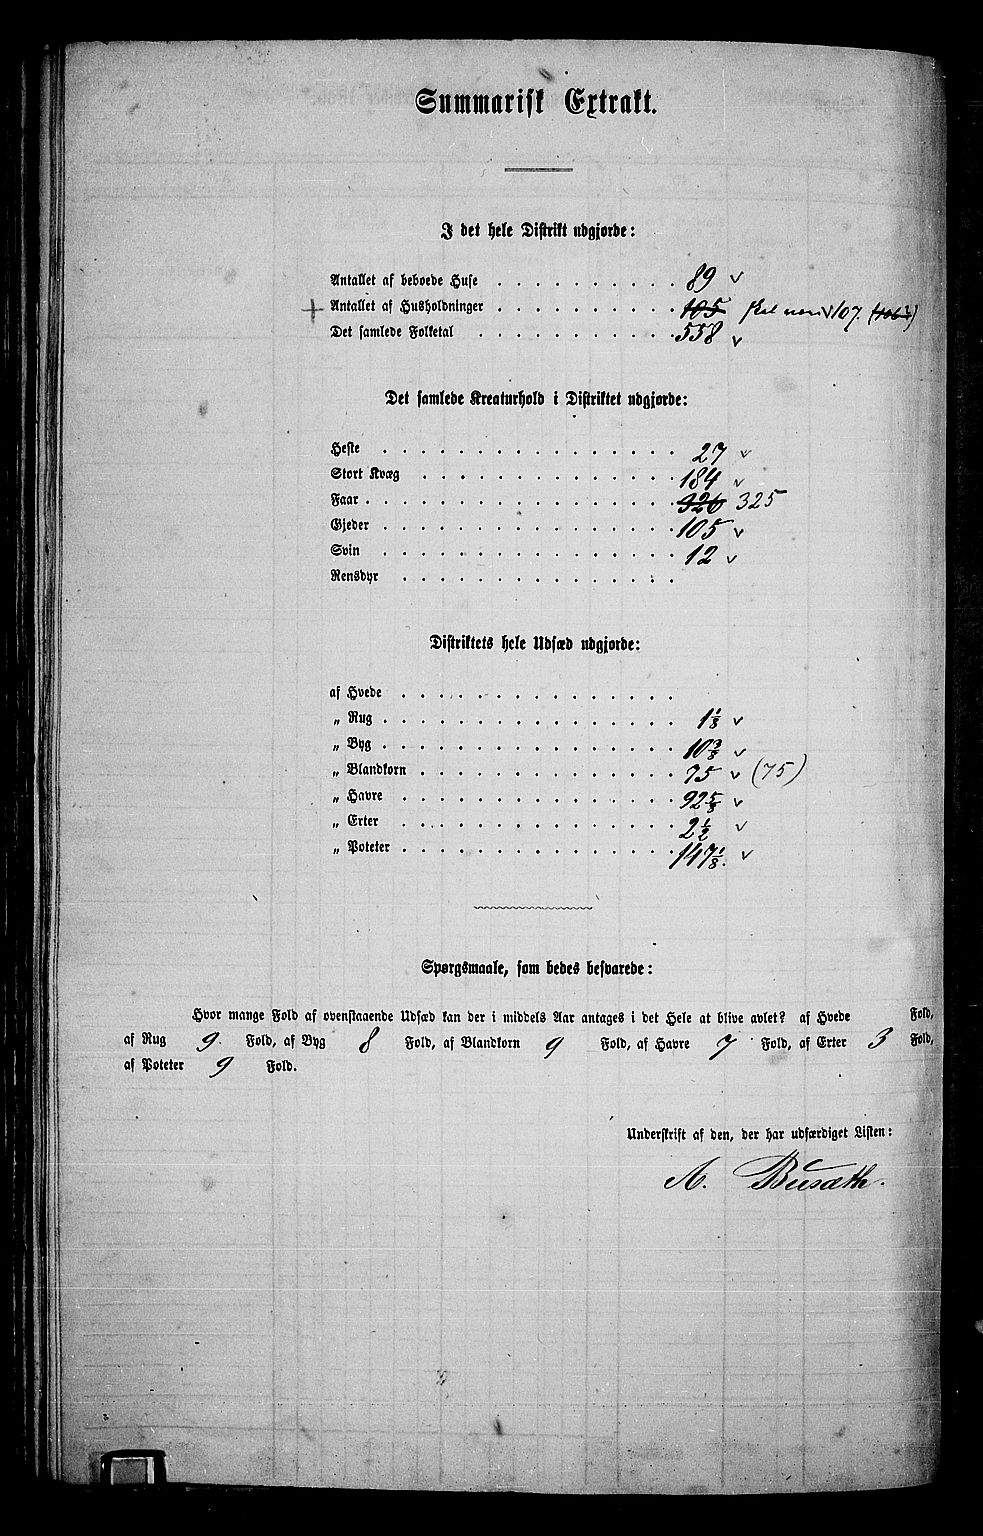 Summarisk Extrakt.
I det hele Distrikt udgjorde:
Antallet af beboede Huse . . . . . . . . . . 89 v
+ Antallet af Husholdninger . . . . . . . . . . 105 skal være v 107. (106?)
Det samlede Folketal . . . . . . . . . . . 558 v
Det samlede Kreaturhold i Distriktet udgjorde:
Heste . . . . . . . . . . . . . . . . 27 v
Stort Kvæg . . . . . . . . . . . . . . 184 v
Faar . . . . . . . . . . . . . . . . . 326 325
Gjeder . . . . . . . . . . . . . . . . 105 v
Svin . . . . . . . . . . . . . . . . 12 v
Rensdyr . . . . . . . . . . . . . . .
Distriktets hele Udsæd udgjorde:
af Hvede . . . . . . . . . . . . . . .
„ Rug . . . . . . . . . . . . . . . . 1 1/8 v
„ Byg . . . . . . . . . . . . . . . . 10 3/8 v
„ Blandkorn . . . . . . . . . . . . . . 75 v (75)
„ Havre . . . . . . . . . . . . . . . 92 5/8 v
„ Erter . . . . . . . . . . . . . . . 2 1/2 v
„ Poteter . . . . . . . . . . . . . . . 147 1/8. v
Spørgsmaale, som bedes besvarede:
Hvor mange Fold af ovenstaaende Udsæd kan der i middels Aar antages i det Hele at blive avlet? af Hvede Fold,
af Rug 9. Fold, af Byg 8 Fold, af Blandkorn 9 Fold, af Havre 7 Fold, af Erter 3 Fold,
af Poteter 9 Fold.
Underskrift af den, der har udfærdiget Listen:
A. Busæth.